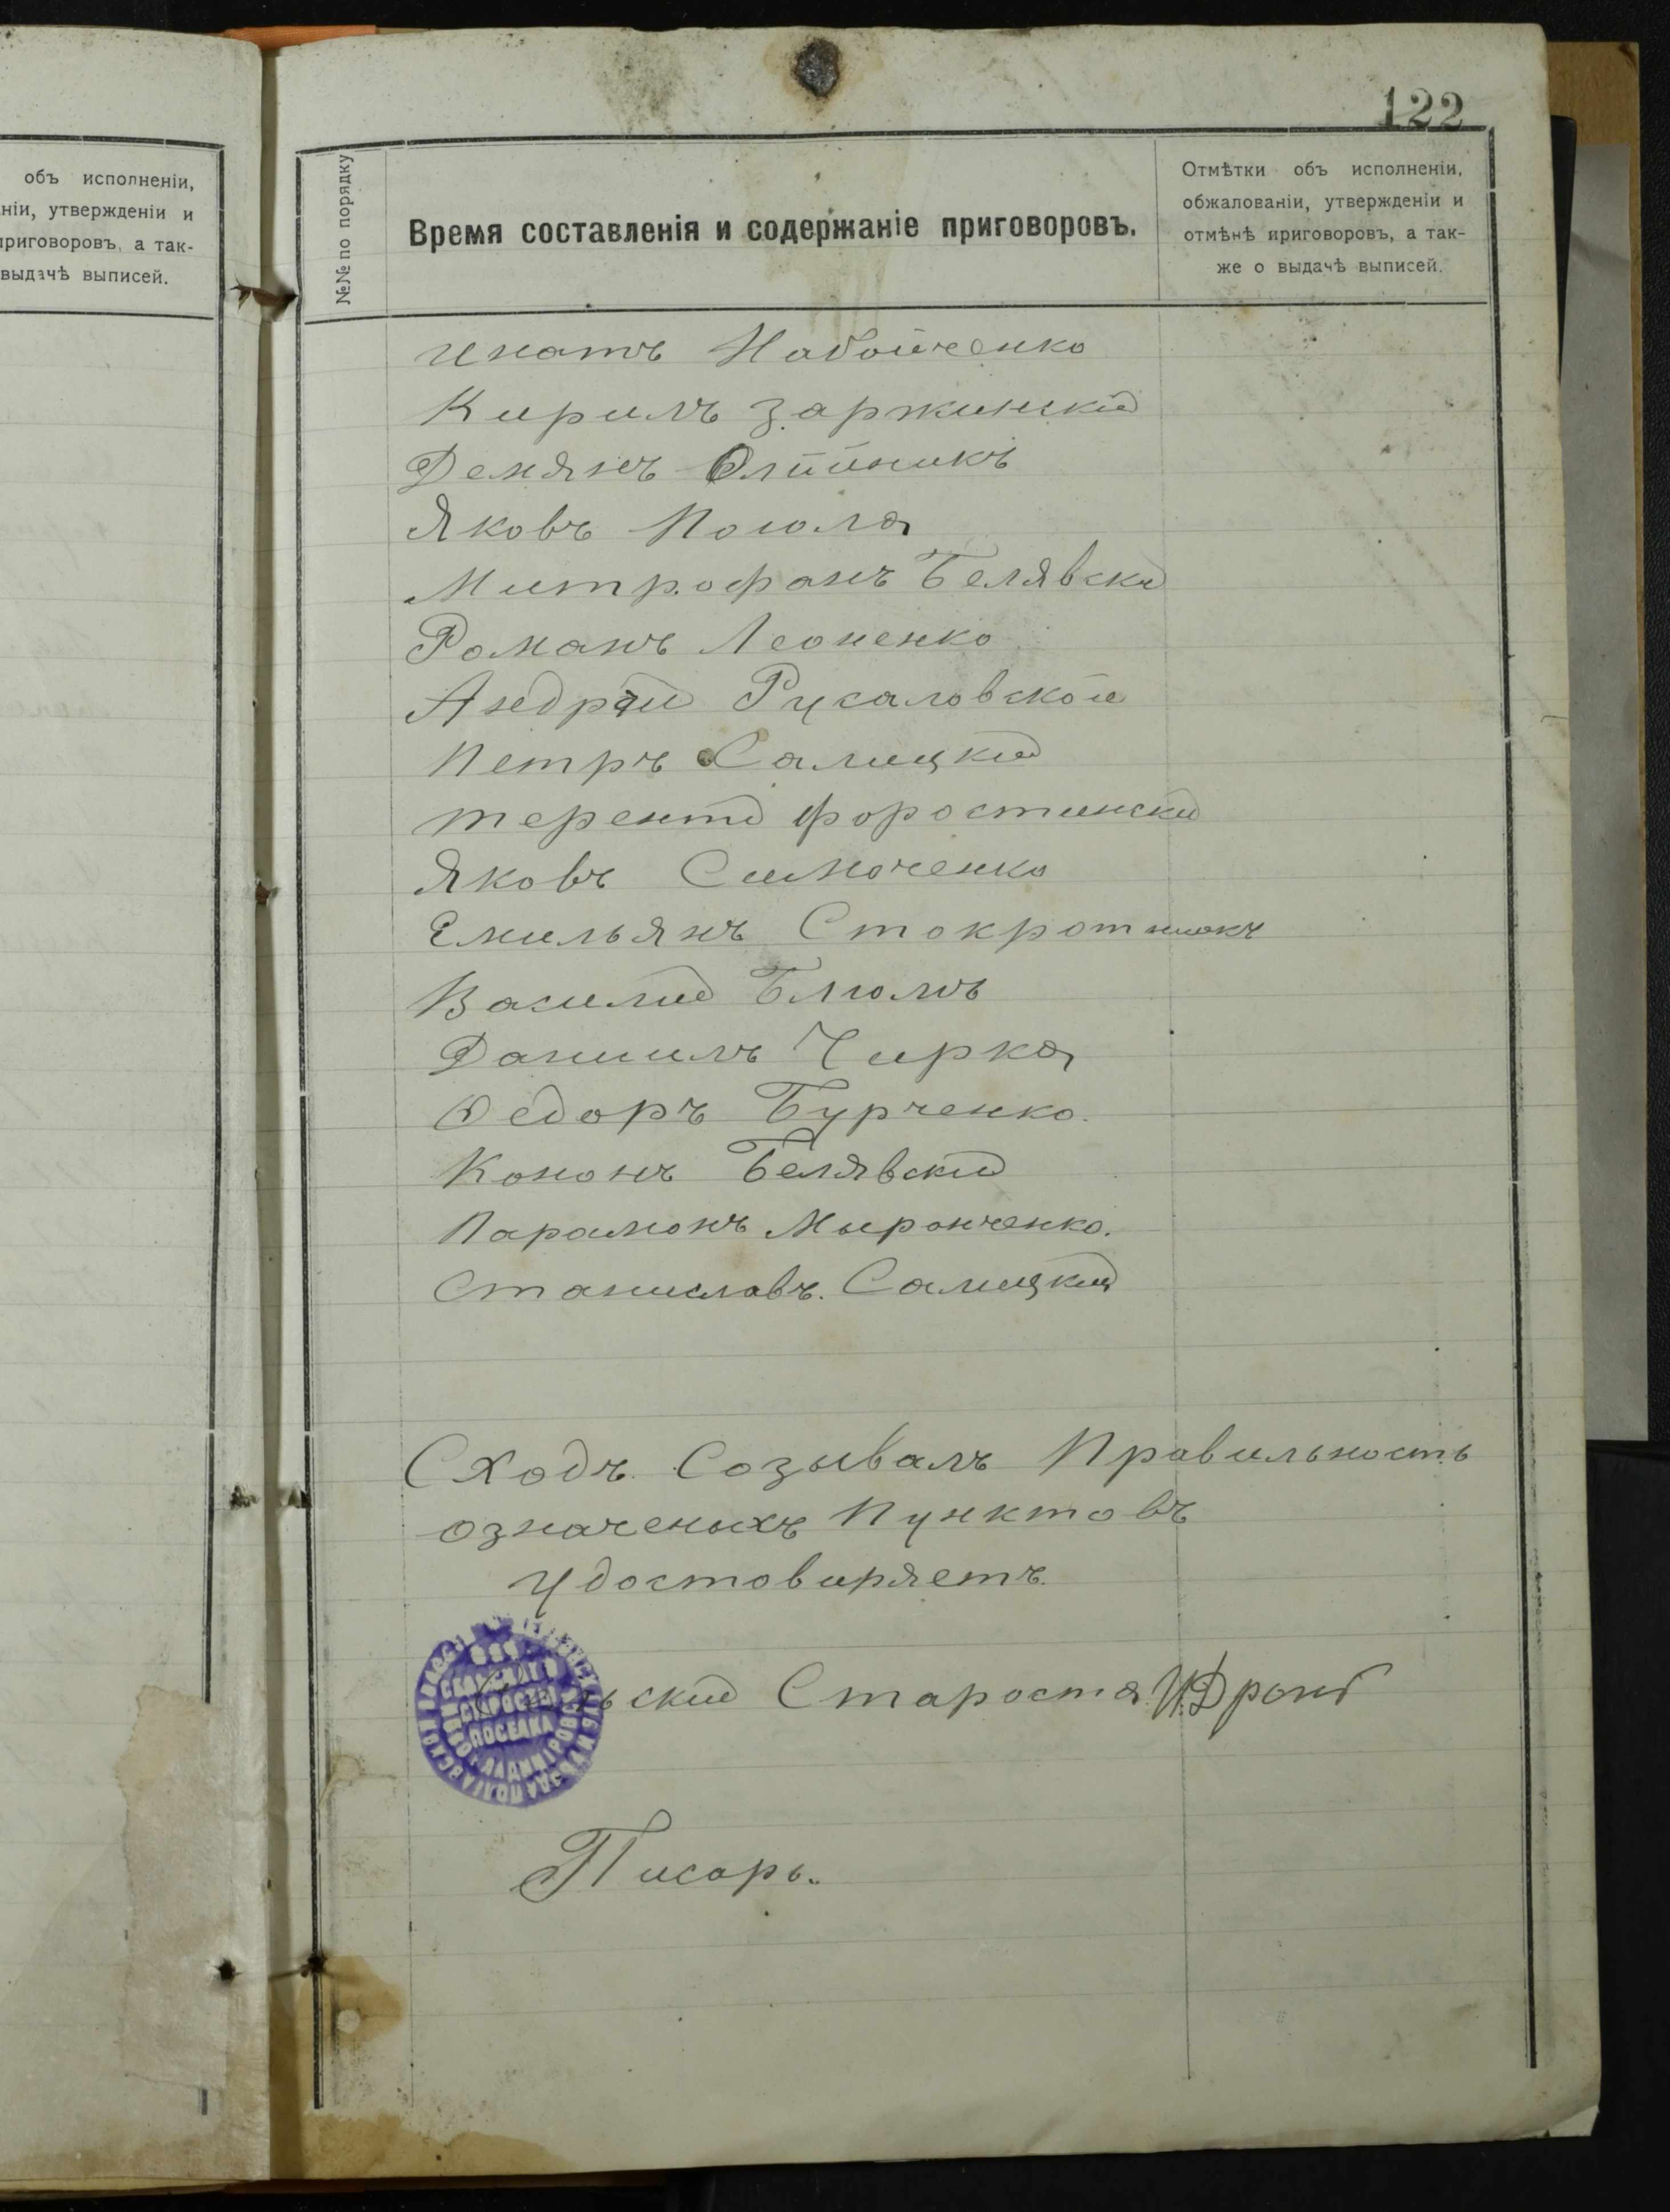 объ исполненіи,
ніи, утвержденіи и
приговоровъ, а так-
выдачѣ выписей.
122
№№ по порядку
Время составленія и содержаніе приговоровъ.
Отмѣтки объ исполненіи,
обжалованіи, утвержденіи и
отмѣнѣ приговоровъ, а так-
же о выдачѣ выписей.
Игнатъ Набойченко
Кирилъ Заржицкій
Демянъ Олійникъ
Яковъ
Митрофанъ Белявскій
Романъ Леоненко
Андрей Русаловской
Петръ Салицкій
терентій форостинскій
Яковъ Симоченко
Емильянъ Стокротнюкъ
Василий Блюмъ
Даниилъ Чирка
Федоръ Бурченко.
Кононъ Белявскій
Парамонъ Мыронченко.
Станиславъ. Салицкий
Сходъ. Созывалъ Правильность
означеныхъ Пунктовъ
Удостовиряетъ.
Сельский Староста И.Дронъ
СЕЛЬСКАГО
СТАРОСТЫ
ПОСЕЛКА
Писарь.